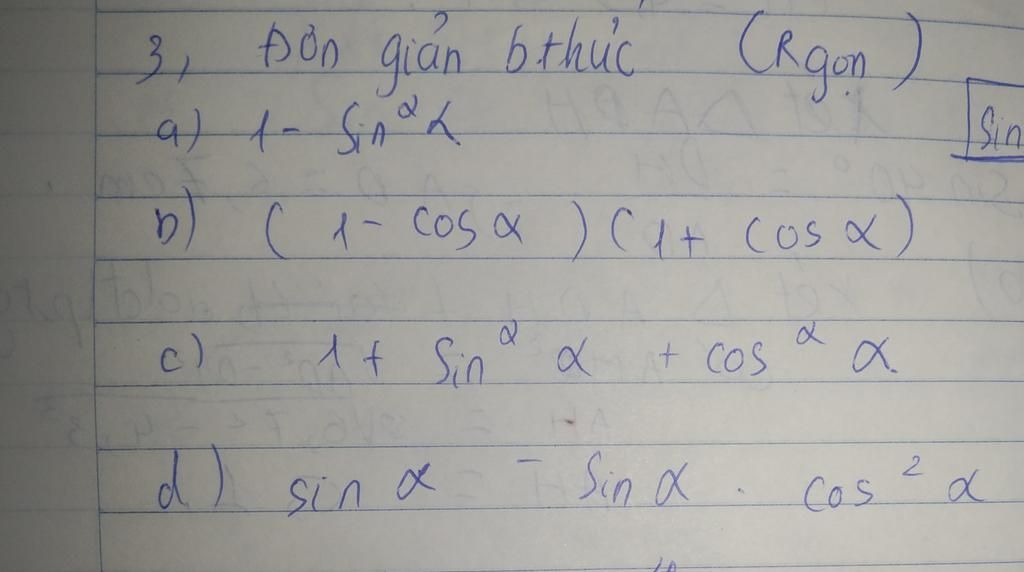 3, Đơn giản bthức (Rgọn)
a) 1 - sin²α
sin
b) (1 - cos α)(1 + cos α)
c) 1 + sin² α + cos² α
d) sin α - sin α . cos² α